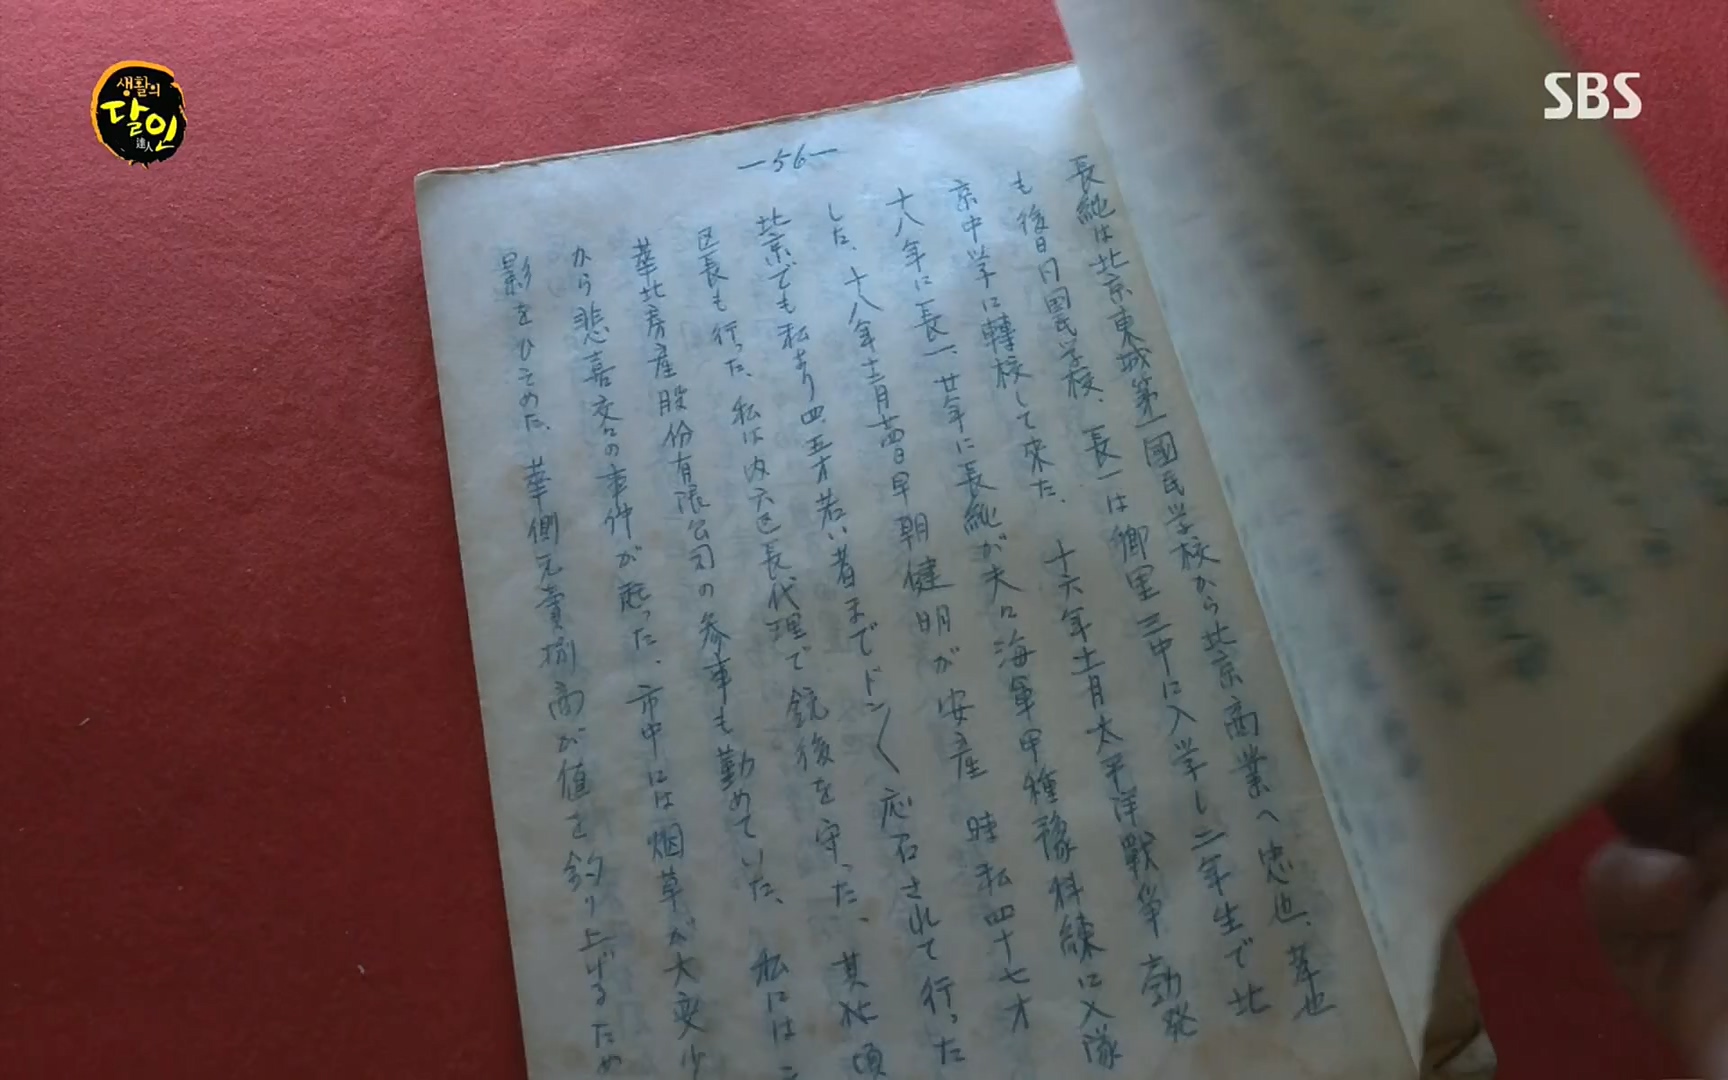 생활의
달인
達人
SBS
—56—
長純は北京東城第一國民学校から北京商業へ忠也、華也
も後日同國民学校、長一は郷里三中に入学し二年生で北
京中学に轉校して来た、十六年十二月太平洋戰争勃発
十八年に長一、廿年に長純が夫々海軍甲種豫科練に入隊
した、十八年十二月廿四日早朝健明が安産 時私四十七才
北京でも私より四、五才若い者までドン〱応召されて行った
区長も行った、私は内六区長代理で銃後を守った、其北頃
華北房産股份有限公司の参事も勤めていた、私には
から悲喜交々の事件が起った、市中には烟草が大変少
影をひそめた、華側元賣捌商が値を釣り上げるため